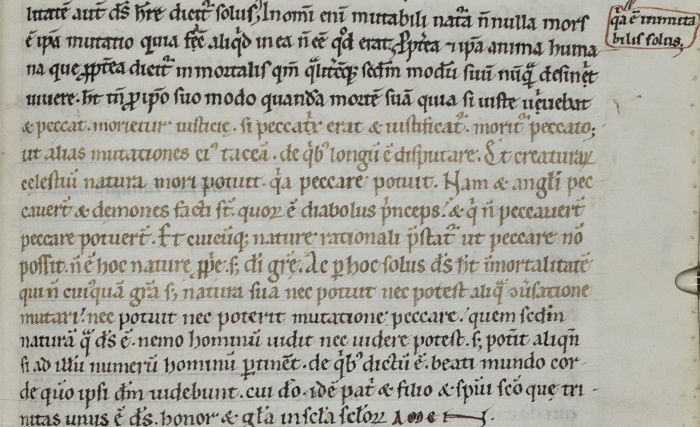 litatē autē ds̄ hr̄e dicit᷑ solus; In omi eni mutabili natā n̄ nulla mors
ē ipā mutatio quia fec̄ aliqd in ea n̄ eē qd erat; Ppt̄ea & ipā anima huma
na que ppt̄ea dicit᷑ inmortalis qm̄ qlit̄cūq; scdm̄ modū suū nūq̄ desinet
uiuere. ht̄ tn̄ p ipō suo modo quandā mortē suā quia si iuste uiuebat
& peccat. moriet᷑ iusticię. si peccat᷑x erat & iustificat᷑. morit᷑ peccato;
ut alias mutationes ei᷒ taceā. de qb᷒ longū ē disputare. Et creaturaꝝ
celestiū natura mori potuit. qa peccare potuit. Nam & angli pec
cauert̄ & demones facti st̄. quoꝝ ē diabolus pnceps. & q n̄ peccauert̄
peccare potuert̄. Et cuicūq; nature rationali p̄stat᷑ ut peccare nō
possit. n̄ ē hoc nature ppe. s; di grē. Ac p hoc solus ds̄ ht̄ īmortalitatē
qui n̄ cui᷒quā grā s; natura sua nec potuit nec potest aliq ɔuersatione
mutari. nec potuit nec poterit mutatione peccare. quem scdm̄
naturā q̄ ds̄ ē. nemo hominū uidit nec uidere potest. s; potit aliqn̄
si ad illū numerū hominū ptinet. de qb᷒ dictū ē. beati mundo cor-
de qm̄ ipsi dm̄ uidebunt. cui dō. idē patr̄ & filio & spū scō que tri-
nitas unus ē ds̄. honor & glā in scla scloꝝ amen
qa ē inmuta
bilis solus.